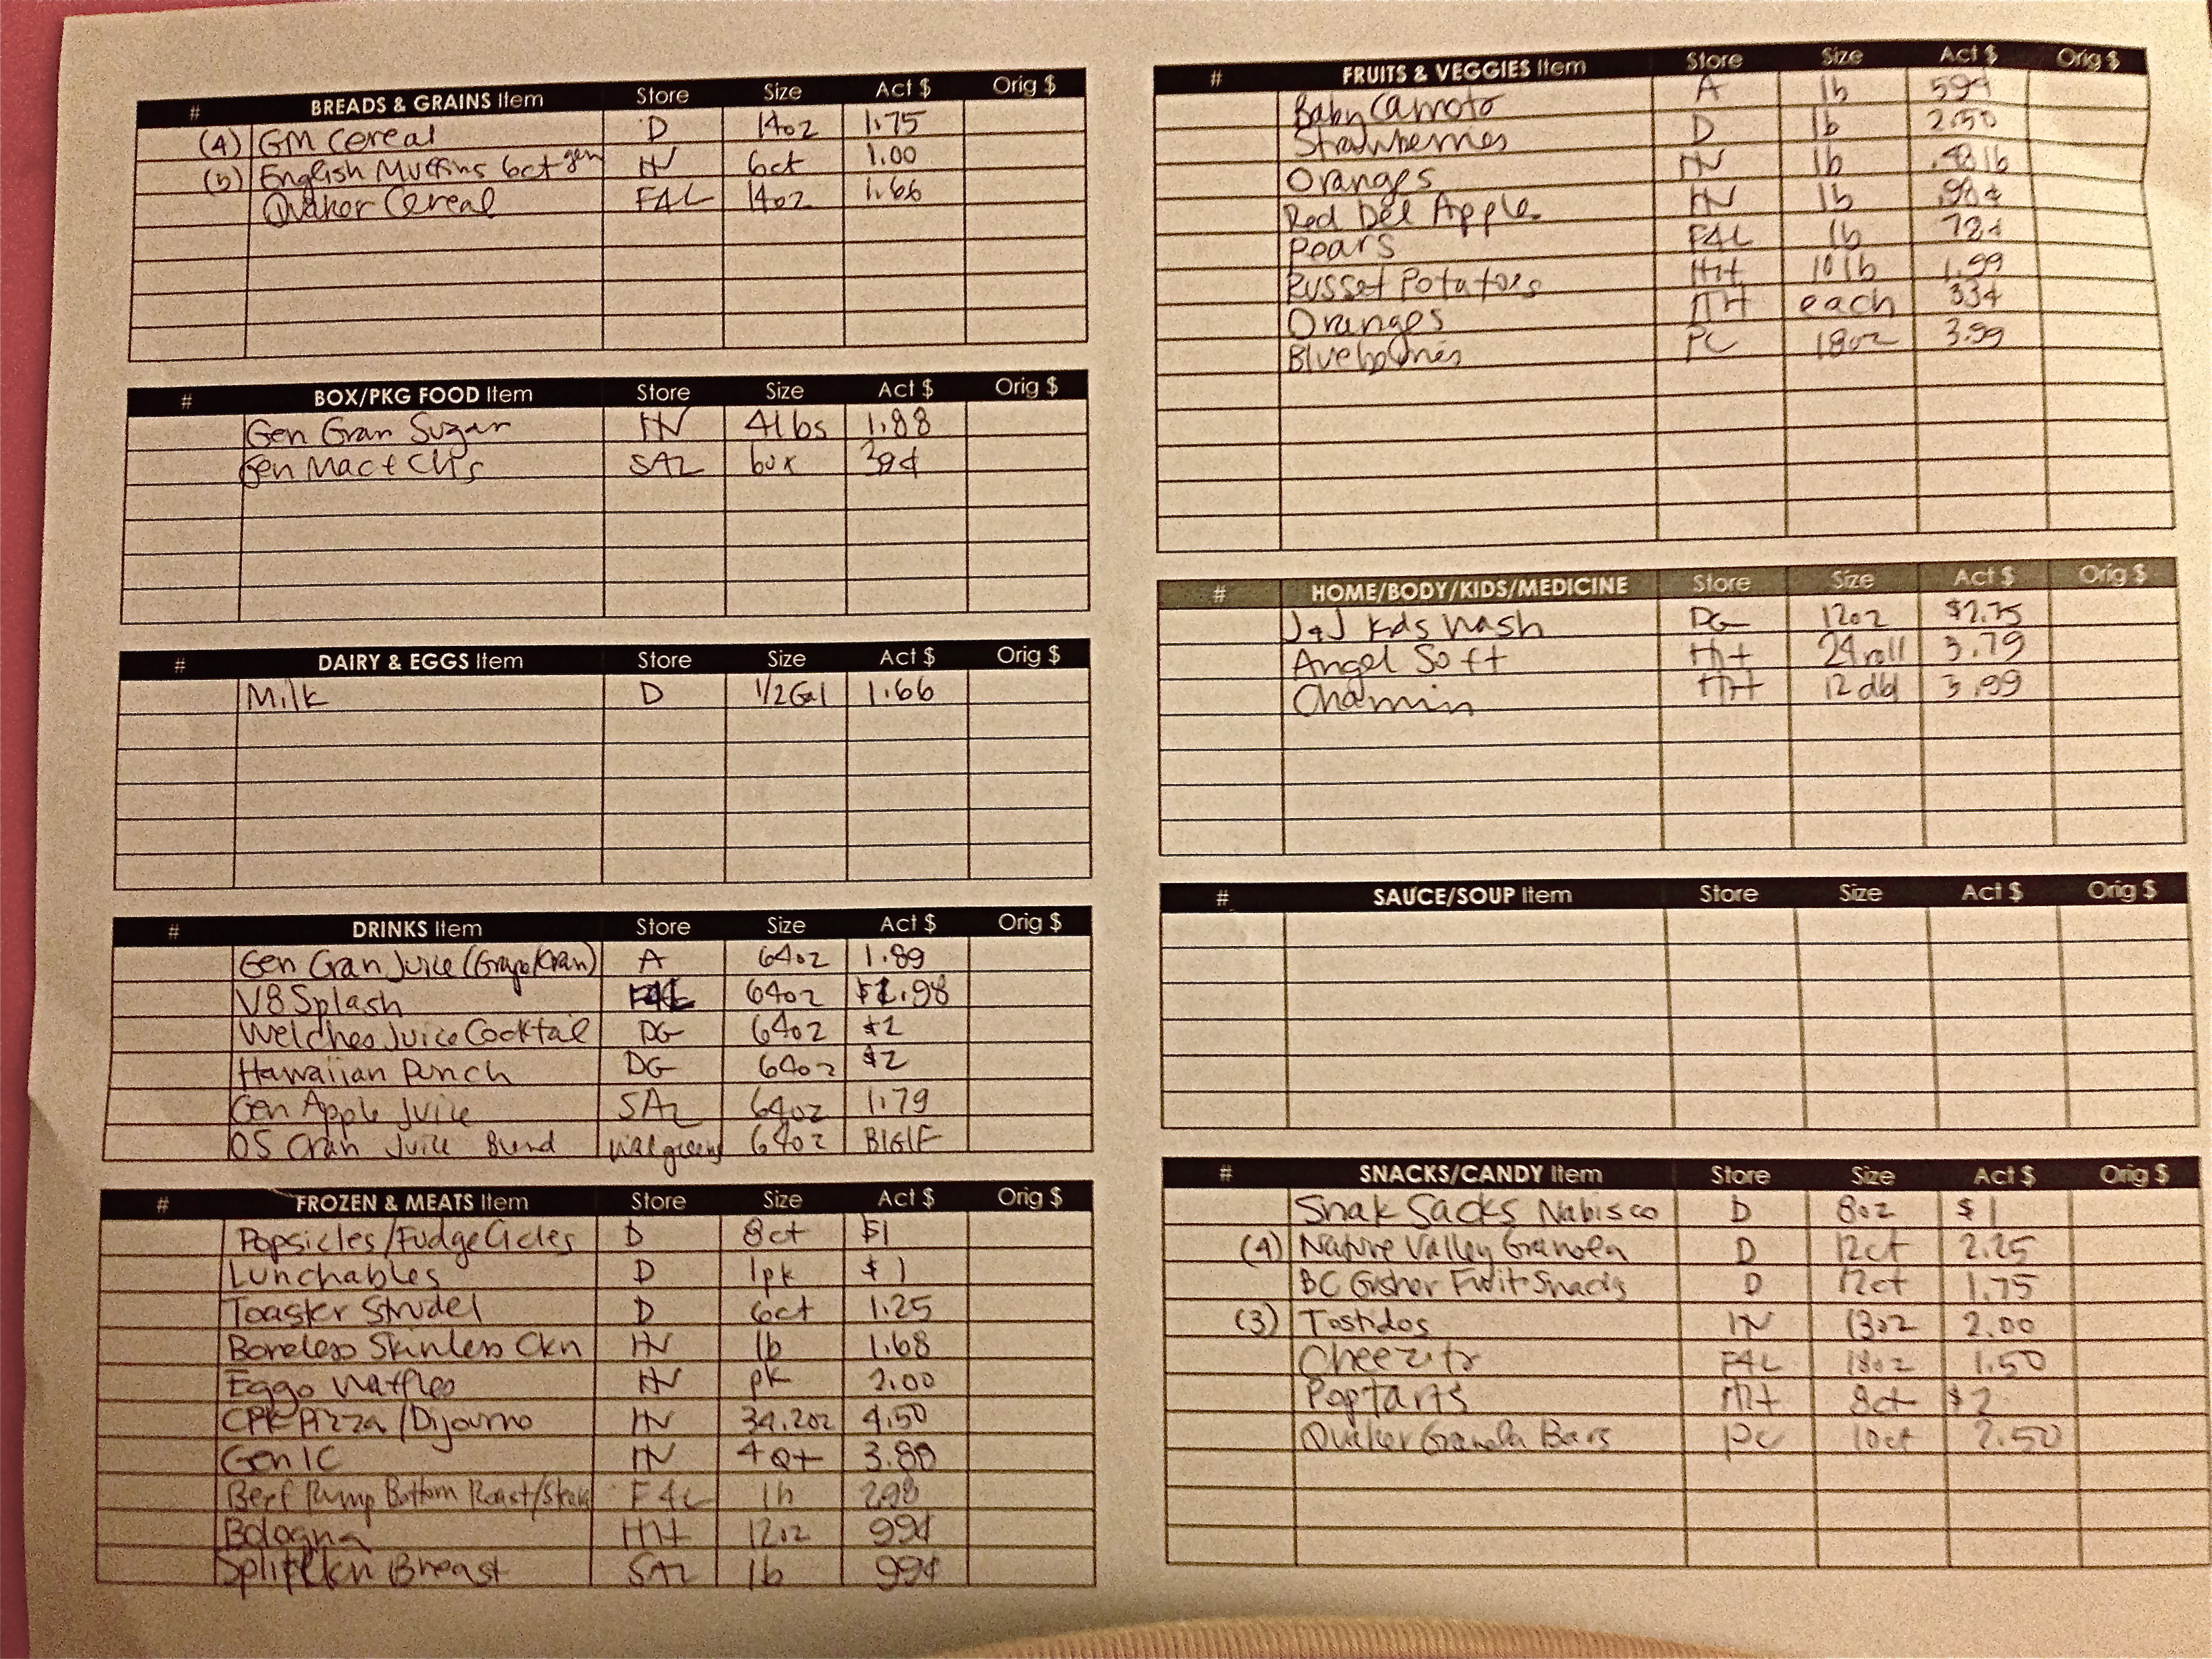 # BREADS & GRAINS Item Store Size Act $ Orig $
(4) GM Cereal D 14oz 1.75
English Muffins 6ct gen HV 6ct 1.00
Quaker Cereal F4L 14oz 1.66
# BOX/PKG FOOD Item Store Size Act $ Orig $
Gen Gran Sugar HV 4lbs 1.88
Gen Mac + Chs SAL box 39¢
# DAIRY & EGGS Item Store Size Act $ Orig $
Milk D 1/2 Gal 1.66
# DRINKS Item Store Size Act $ Orig $
Gen Cran Juice (Grape/Cran) A 64oz 1.89
V8 Splash F4L 64oz $1.98
Welches Juice Cocktail DG 64oz $2
Hawaiian Punch DG 64oz $2
Gen Apple Juice SAL 64oz 1.79
OS Cran Juice Blend Walgreens 64oz B1G1F
# FROZEN & MEATS Item Store Size Act $ Orig $
Popsicles/FudgeCicles D 8ct $1
Lunchables D 1pk $1
Toaster Strudel D 6ct 1.25
Boneless Skinless Ckn HV lb 1.68
Eggo Waffles HV pk 2.00
CPK Pizza/Dijourno HV 34.2oz 4.50
Gen IC HV 4 Qt 3.88
Beef Rump Bottom Roast/Steak F4L lb 2.98
Bologna MH 12oz 99¢
Split Ckn Breast SAL lb 99¢
# FRUITS & VEGGIES Item Store Size Act $ Orig $
Baby Carrots A lb 59¢
Strawberries D lb 2.50
Oranges HV lb .48 lb
Red Del Apple HV lb .98¢
Pears F4L lb 78¢
Russet Potatoes MH 10 lb 1.99
Oranges MH each 33¢
Blueberries PC 18oz 3.99
# HOME/BODY/KIDS/MEDICINE Store Size Act $ Orig $
J+J Kids Wash DG 12oz $2.75
Angel Soft MH 24 roll 3.79
Charmin MH 12 dbl 3.99
# SAUCE/SOUP Item Store Size Act $ Orig $
# SNACKS/CANDY Item Store Size Act $ Orig $
Snak Sacks Nabisco D 8oz $1
(4) Nature Valley Granola D 12ct 2.25
BC Gusher Fruit Snacks D 12ct 1.75
(3) Tostidos HV 13oz 2.00
Cheezits F4L 18oz 1.50
Poptarts MH 8ct $2
Quaker Granola Bars PC 10ct 2.50